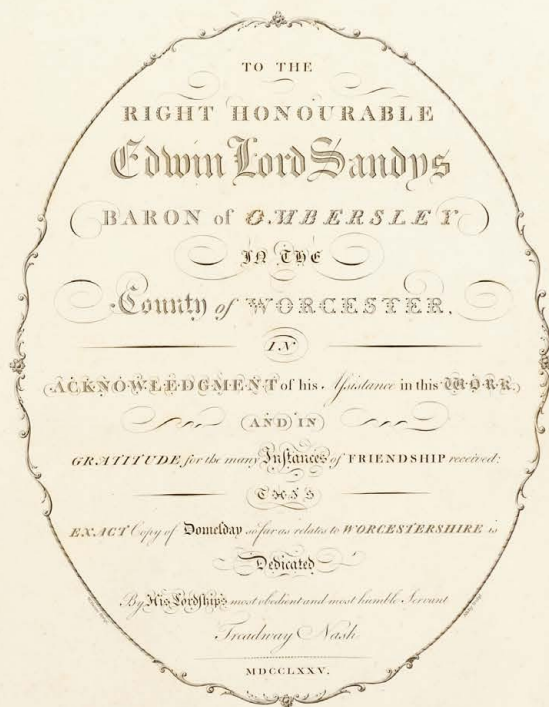 TO THE
RIGHT HONOURABLE
Edwin Lord Sandys
BARON of OMBERSLEY
IN THE
County of WORCESTER,
IN
ACKNOWLEDGMENT of his Aſsistance in this WORK
AND IN
GRATITUDE for the many Inſtances of FRIENDSHIP received:
THIS
EXACT Copy of Domeſday so far as relates to WORCESTERSHIRE is
Dedicated
By His Lordſhip's most obedient and most humble Servant
Treadway Nash
MDCCLXXV.